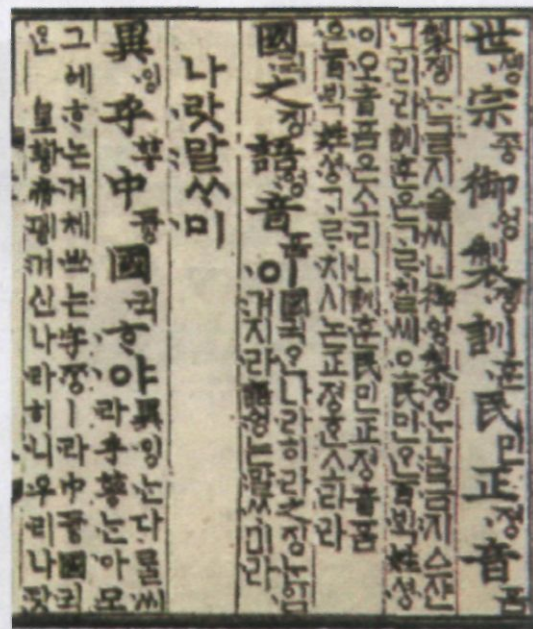 世솅宗종御ᅌᅥᆼ製졩訓훈民민正져ᇰ音ᅙᅳᆷ
製졩는글지ᅀᅳᆯ씨니御ᅌᅥᆼ製졩는님금지ᅀᅳ샨
그리라訓훈은ᄀᆞᄅᆞ칠씨오民민ᄋᆞᆫ百ᄇᆡᆨ姓셔ᇰ
이오音ᅙᅳᆷ은소리니訓훈民민正져ᇰ音ᅙᅳᆷ
은百ᄇᆡᆨ姓셔ᇰᄀᆞᄅᆞ치시논正져ᇰᄒᆞᆫ소리라
國귁之징語ᅌᅥᆼ音ᅙᅳᆷ이
國귁ᄋᆞᆫ나라히라之징ᄂᆞᆫ입
겨지라語ᅌᅥᆼ는말ᄊᆞ미라
나랏말ᄊᆞ미
異잉乎ᅘᅩᆼ中듀ᇰ國귁ᄒᆞ야
異잉ᄂᆞᆫ다ᄅᆞᆯ씨
라乎ᅘᅩᆼ는아모
그ᅌᅦᄒᆞ논겨체쓰는字ᄍᆞᆼㅣ라中듀ᇰ國귁
ᄋᆞᆫ皇ᅘᅪᇰ帝뎽겨신나라히니우리나랏